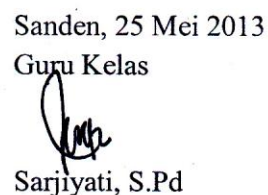 Sanden, 25 Mei 2013
Guru Kelas
Sarjiyati, S.Pd